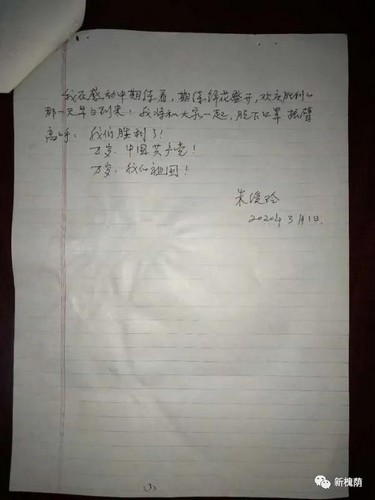 我在感动中期待着，期待鲜花盛开，欢庆胜利的
那一天早日到来！我将和大家一起，脱下口罩 振臂
高呼：我们胜利了！
万岁，中国共产党！
万岁，我们祖国！
朱
2020年3月1日
(3)
新槐荫